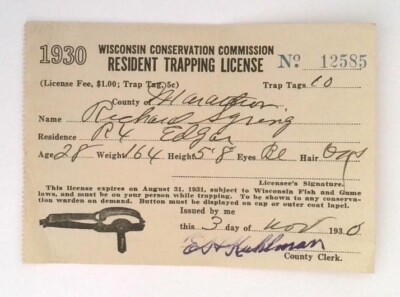 1930 WISCONSIN CONSERVATION COMMISSION
RESIDENT TRAPPING LICENSE No. 12585
(License Fee, $1.00; Trap Tag, 5c) Trap Tags 10
County of Marathon
Name Richard
Residence R4 Edgar
Age 28 Weight 164 Height 5'8 Eyes Bl Hair
Licensee's Signature.
This license expires on August 31, 1931, subject to Wisconsin Fish and Game
laws, and must be on your person while trapping. To be shown to any conserva-
tion warden on demand. Button must be displayed on cap or outer coat lapel.
Issued by me
this 3 day of Nov 1930
Kuhlman
County Clerk.